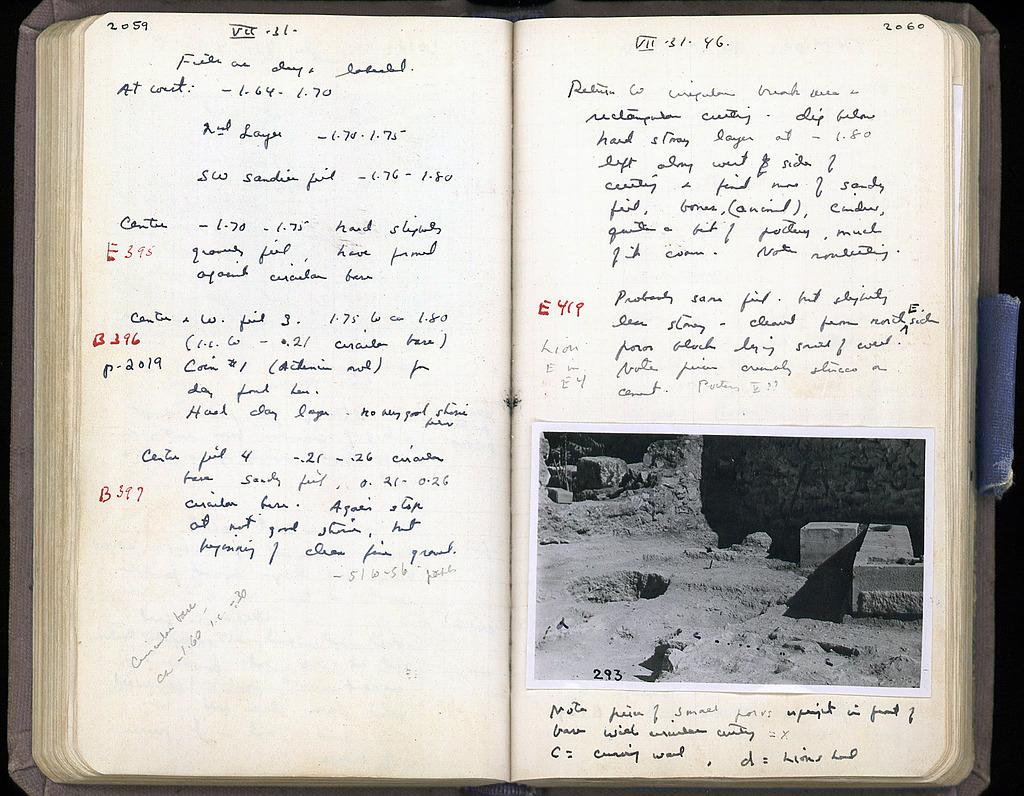 2059
VII - 31 -
Fill as dug & labeled.
At west: - 1.64 - 1.70
2nd Layer - 1.70 - 1.75
SW sandier fill - 1.76 - 1.80
Center - 1.70 - 1.75 hard slightly
E 395
gravelly fill, have formed
against circular base
Center & W. fill 3. 1.75 to ca 1.80
B 396
(i.e. to - 0.21 circular base)
p. 2019
Coin #1 (Athenian owl) for
day found here.
Hard clay layer - no very good stosis
here
Center fill 4 - .21 - .26 circular
base sandy fill, 0.21 - 0.26
B 397
circular base. Again stop
at not good stosis, but
beginning of clean fine gravel.
- 51 to - 56
circular base -
ca - 1.60 i.e. - .30
2060
VII - 31 - 46.
Return to irregular break area &
rectangular cutting - dig below
hard stony layer at - 1.80
left along west side of
cutting & find more of sandy
fill, bones, (animal), cinders,
quite a bit of pottery, much
of it coarse. Note
E 419
Probably same fill - but slightly
less stony - cleared from north E. side
Lion
poros block lying south of west.
E in
E 4
Note piece crumbly stucco or
cement. Pottery V ??
293
d
c
Note piece of small poros upright in front of
base with circular cutting = x
C = curving wall, d = Lions head